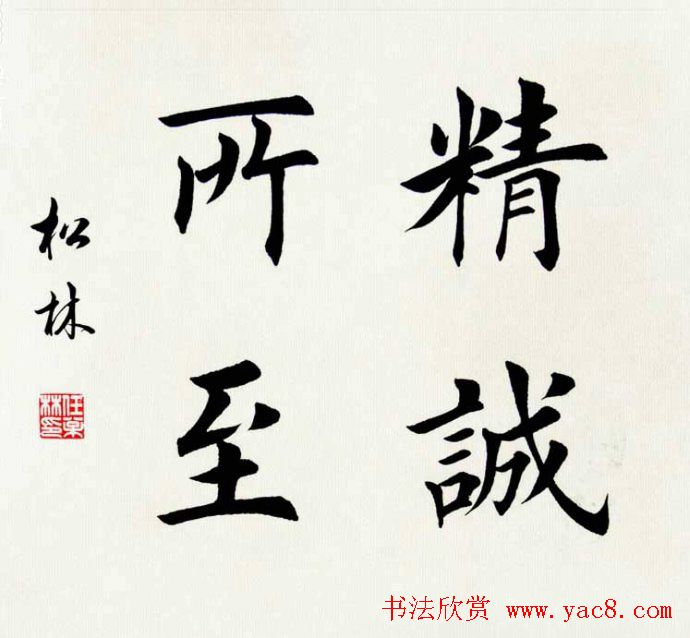 精誠
所至
松林
任宗林印
书法欣赏 www.yac8.com